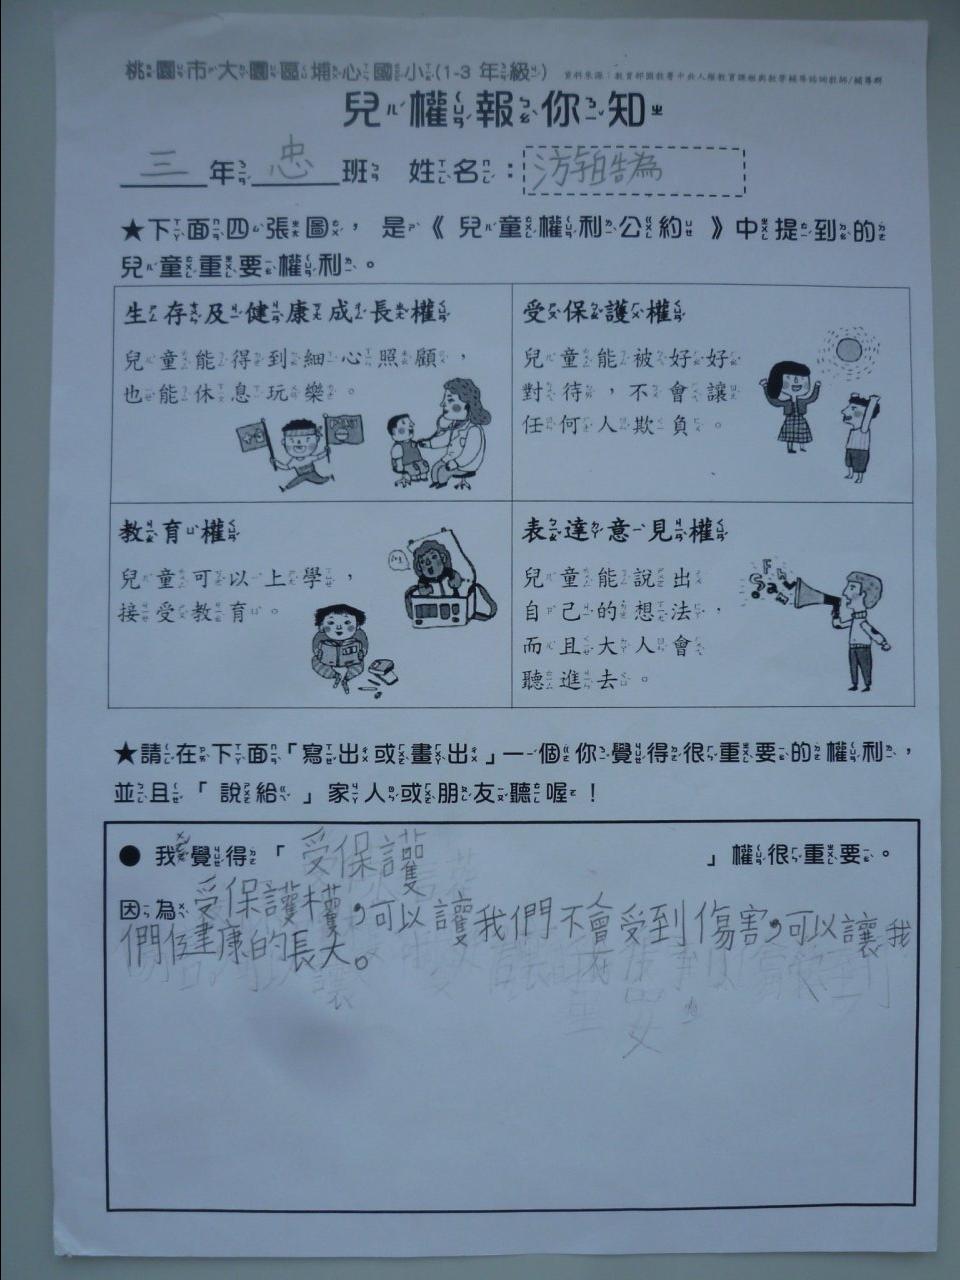 桃園市大園區埔心國小(1-3 年級)
資料來源：教育部國教署中央人權教育課程與教學輔導諮詢教師/輔導群
兒權報你知
三年忠班 姓名：
★下面四張圖，是《兒童權利公約》中提到的
兒童重要權利。
生存及健康成長權
兒童能得到細心照顧，
也能休息玩樂。
受保護權
兒童能被好好
對待，不會讓
任何人欺負。
教育權
兒童可以上學，
接受教育。
表達意見權
兒童能說出
自己的想法，
而且大人會
聽進去。
★請在下面「寫出或畫出」一個你覺得很重要的權利，
並且「說給」家人或朋友聽喔！
●我覺得「受保護」權很重要。
因為受保護權，可以讓我們不會受到傷害，可以讓我
們健康的長大。